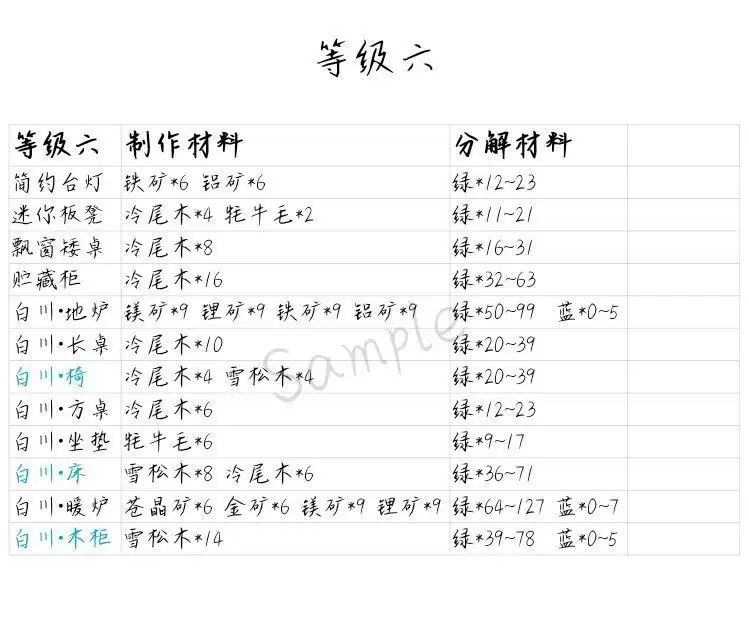 等级六
等级六 制作材料 分解材料
简约台灯 铁矿*6 铝矿*6 绿*12~23
迷你板凳 冷尾木*4 牦牛毛*2 绿*11~21
飘窗矮桌 冷尾木*8 绿*16~31
贮藏柜 冷尾木*16 绿*32~63
白川·地炉 镁矿*9 锂矿*9 铁矿*9 铝矿*9 绿*50~99 蓝*0~5
白川·长桌 冷尾木*10 绿*20~39
白川·椅 冷尾木*4 雪松木*4 绿*20~39
白川·方桌 冷尾木*6 绿*12~23
白川·坐垫 牦牛毛*6 绿*9~17
白川·床 雪松木*8 冷尾木*6 绿*36~71
白川·暖炉 苍晶矿*6 金矿*6 镁矿*9 锂矿*9 绿*64~127 蓝*0~7
白川·木柜 雪松木*14 绿*39~78 蓝*0~5
Sample